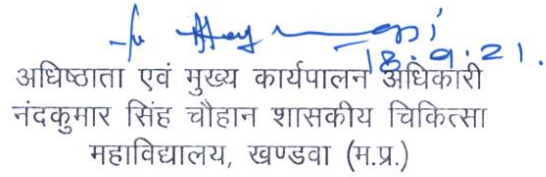 18.9.21.
अधिष्ठाता एवं मुख्य कार्यपालन अधिकारी
नंदकुमार सिंह चौहान शासकीय चिकित्सा
महाविद्यालय, खण्डवा (म.प्र.)